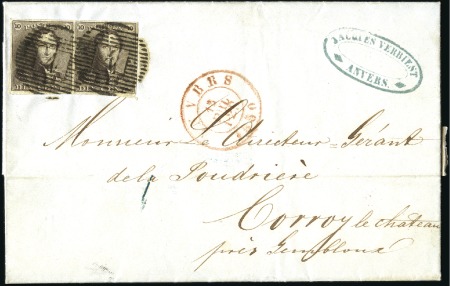 10 10
JACQUES VERBIEST
ANVERS.
Monsieur Le Directeur-Gérant
de la Poudrière
Corroy le chateau
près Gembloux